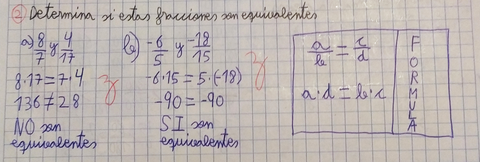 ② Determina si estas fracciones son equivalentes
a) 8/7 y 4/17
8·17=7·4
136≠28
NO son
equivalentes
b) -6/5 y -18/15
-6·15=5·(-18)
-90=-90
SI son
equivalentes
a/b = c/d
a·d=b·c
FORMULA